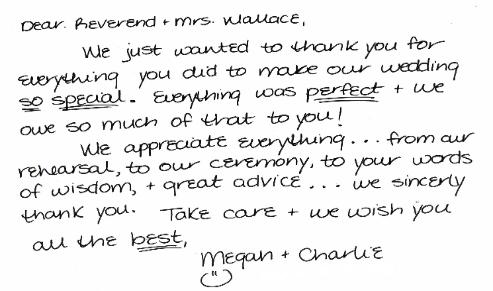 Dear Reverend + Mrs. Wallace,
We just wanted to thank you for
everything you did to make our wedding
so special. Everything was perfect + we
owe so much of that to you!
We appreciate everything... from our
rehearsal, to our ceremony, to your words
of wisdom, + great advice... we sincerly
thank you. Take care + we wish you
all the best,
Megan + Charlie